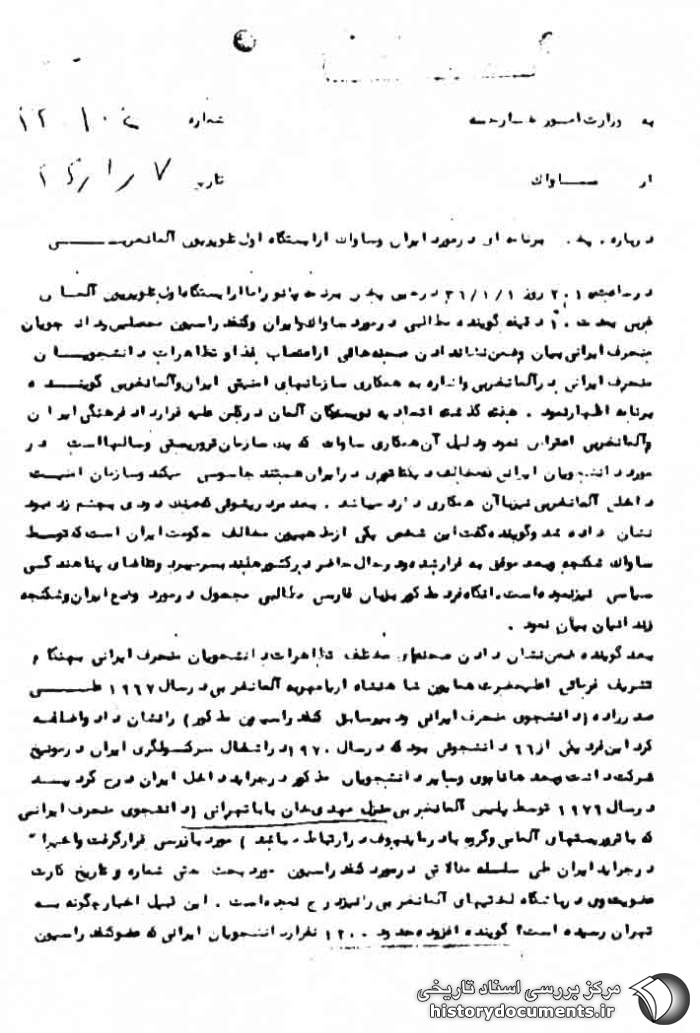 به وزارت امور خارجه شماره
از ساواک تاریخ
درباره . پخش برنامه ای در مورد ایران و ساواک از ایستگاه اول تلویزیون آلمانغربی
در ساعت روز ۳۶/۱/۱ در حین پخش برنامه پانوراما از ایستگاه اول تلویزیون آلمان
غربی بمدت ۱۰ دقیقه گوینده مطالبی در مورد ساواک و ایران و کنفدراسیون محصلین و دانشجویان
منحرف ایرانی بیان و ضمن نشان دادن صحنه هائی از اعتصاب غذا و تظاهرات دانشجویان
منحرف ایرانی در آلمانغربی و اشاره به همکاری سازمانهای امنیتی ایران و آلمانغربی گوینده
برنامه اظهار نمود . هفته گذشته اتحادیه نویسندگان آلمان در بن علیه قرارداد فرهنگی ایران
و آلمانغربی اعتراض نمود و دلیل آن همکاری ساواک که یک سازمان تروریستی و سالها است در
مورد دانشجویان ایرانی که مخالف دیکتاتوری در ایران هستند جاسوسی میکند و سازمان امنیت
داخلی آلمانغربی نیز با آن همکاری دارد میباشد . بعد مرد ریشوئی که عینک دودی بچشم زده بود
نشان داده شد و گوینده گفت این شخص یکی از مذهبیون مخالف حکومت ایران است که توسط
ساواک شکنجه و بعد موفق به فرار شده و در حال حاضر در کشور هلند بسر میبرد و تقاضای پناهندگی
سیاسی نیز نموده است . آنگاه فرد مذکور بزبان فارسی مطالبی مجعول در مورد وضع ایران و شکنجه
زندانیان بیان نمود .
بعد گوینده ضمن نشان دادن صحنه های مختلف تظاهرات دانشجویان منحرف ایرانی بهنگام
تشریف فرمائی اعلیحضرت همایون شاهنشاه آریامهر به آلمانغربی در سال ۱۹۶۷ علی
صدرزاده (دانشجوی منحرف ایرانی و دبیر سابق کنفدراسیون مذکور) را نشان داد و اضافه
کرد این فرد یکی از ۶۱ دانشجوئی بود که در سال ۱۹۷۰ در اشغال سرکنسولگری ایران در مونیخ
شرکت داشت و بعدها نام وی و سایر دانشجویان مذکور در جراید داخل ایران درج گردید
در سال ۱۹۷۶ توسط پلیس آلمانغربی منزل مهدی خان بابا تهرانی (دانشجوی منحرف ایرانی
که با تروریستهای آلمانی و گروه بادرماینهوف در ارتباط میباشد ) مورد بازرسی قرار گرفت و اخیرا"
در جراید ایران طی سلسله مقالاتی در مورد کنفدراسیون مورد بحث حتی شماره و تاریخ کارت
عضویت وی در باشگاه آلمانغربی را نیز درج نموده است . این قبیل اخبار چگونه به
تهران رسیده است؟ گوینده افزود حدود ۱۲۰۰ نفر از دانشجویان ایرانی که عضو کنفدراسیون
مرکز بررسی اسناد تاریخی
historydocuments.ir